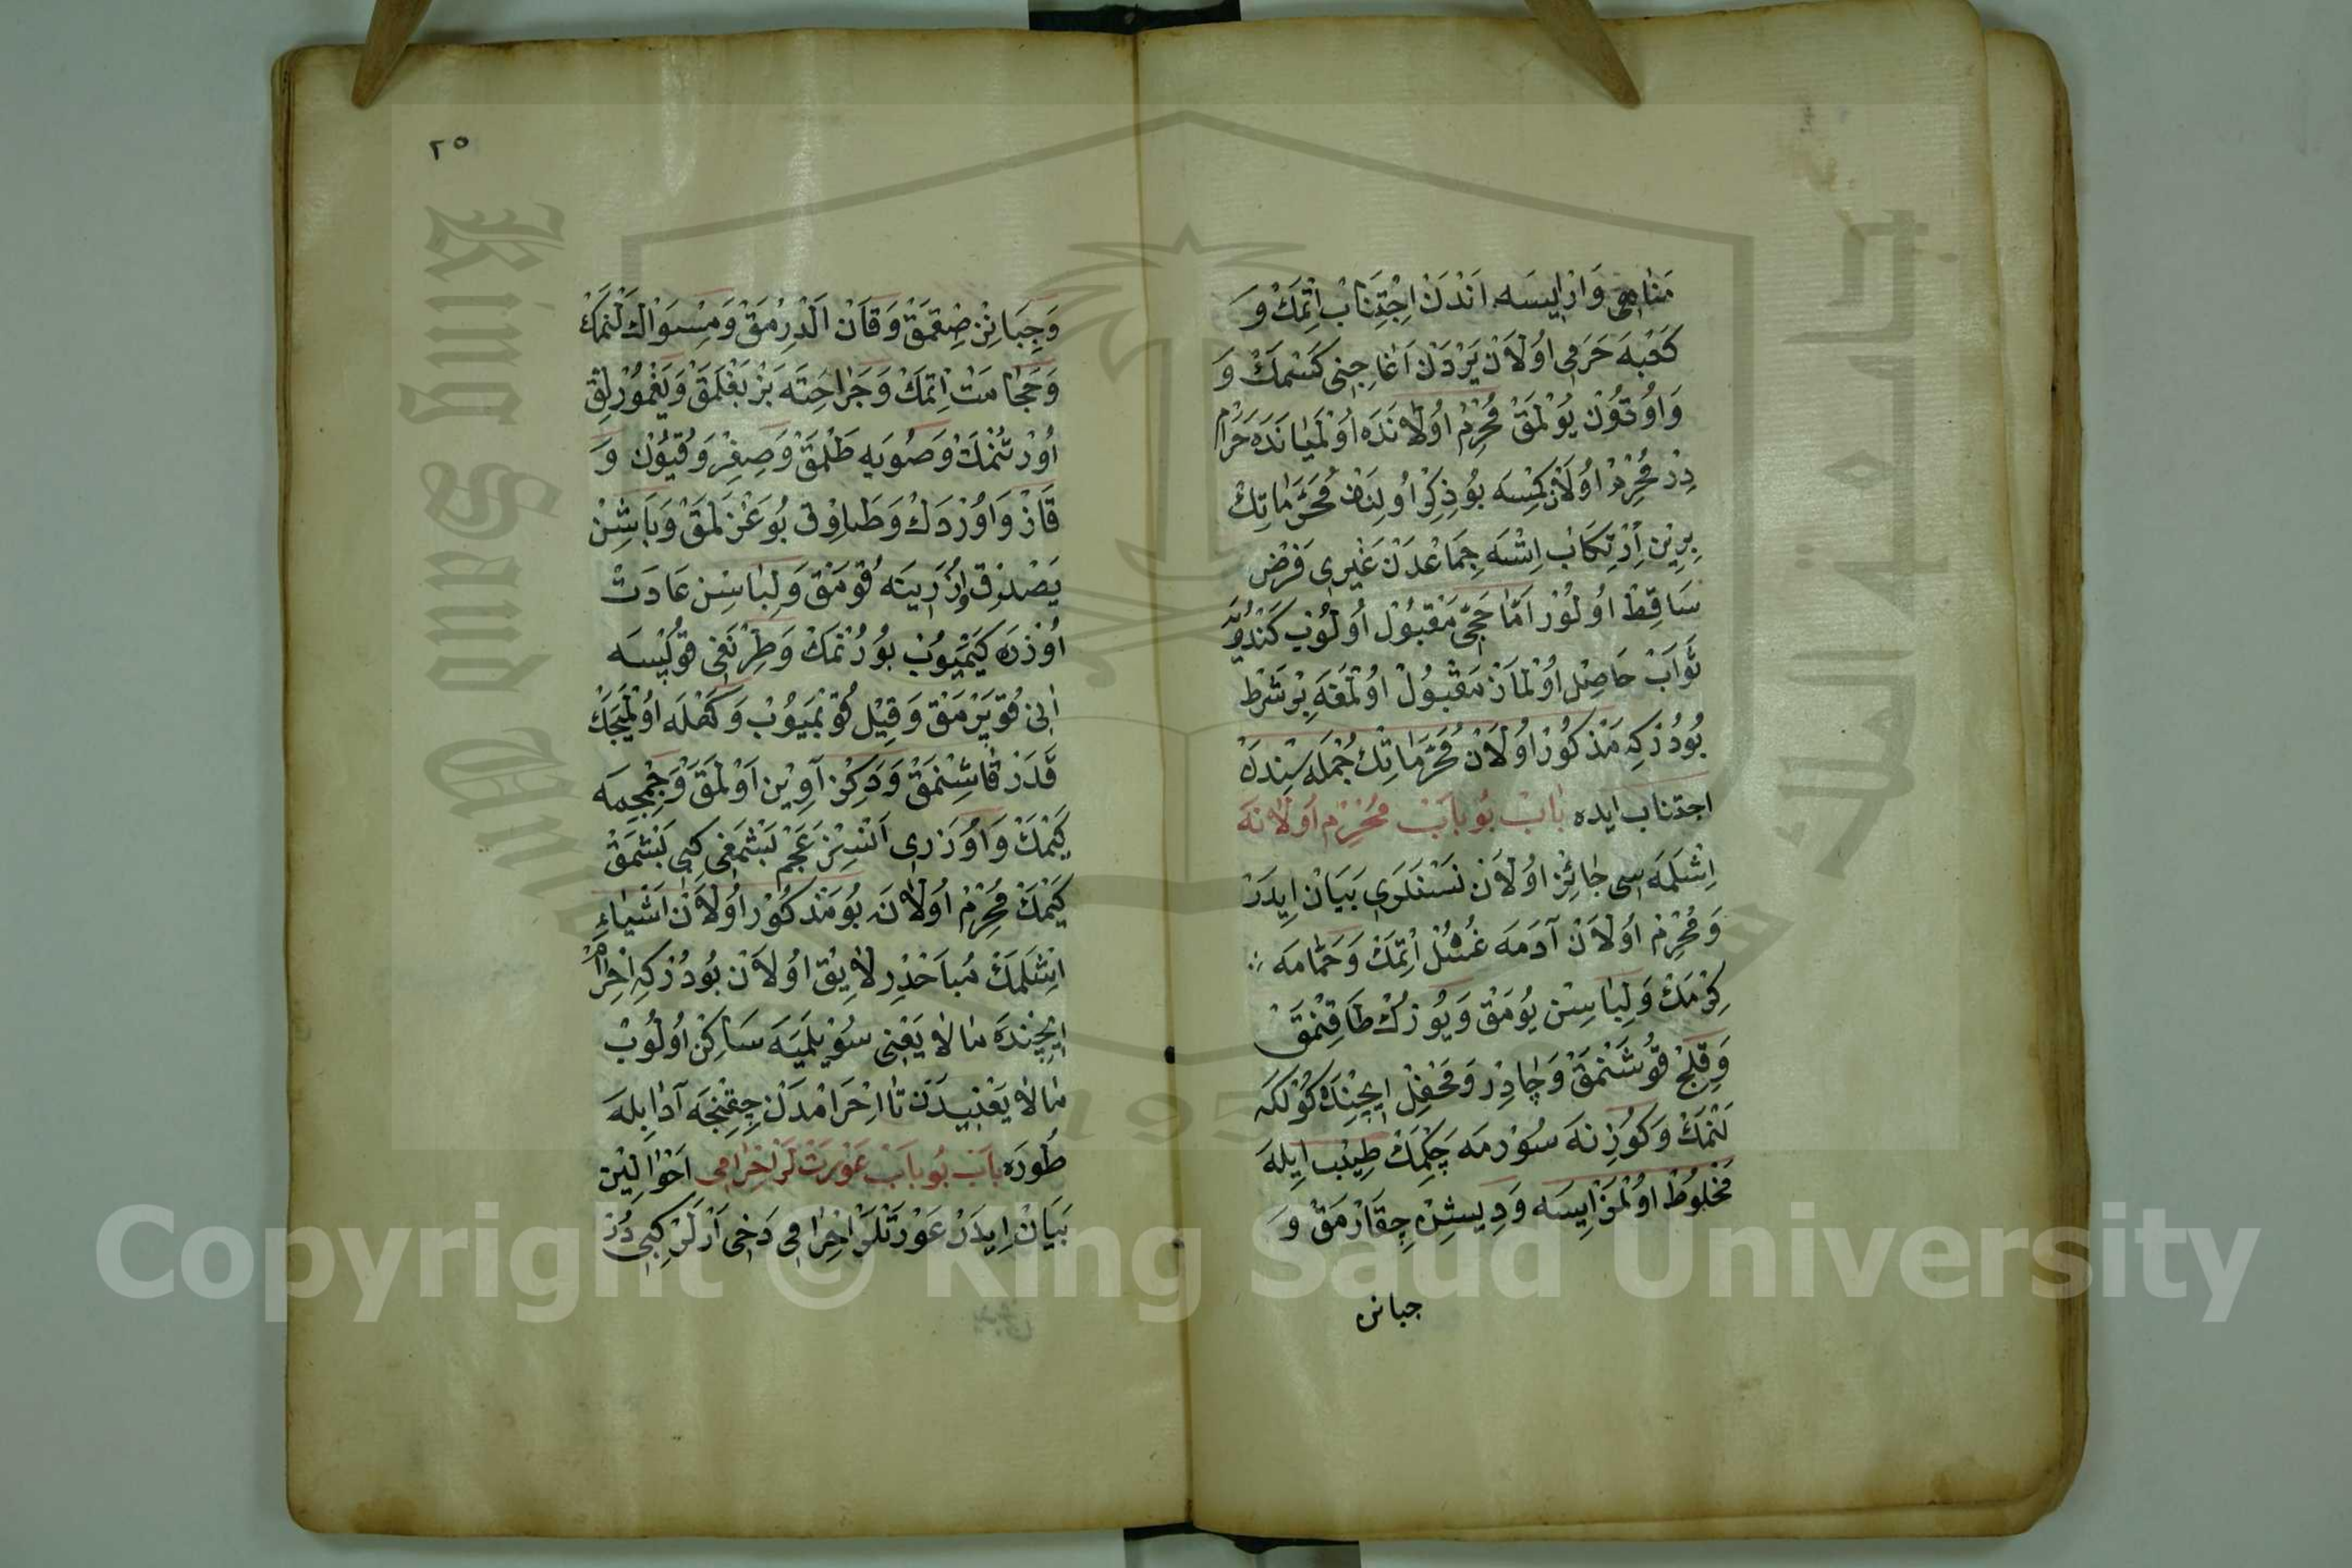 مَنٰاهِى وَارْ اِيسَه اَنْدَنْ اِجْتِنَابْ اِتْمَكْ وَ
كَعْبَه حَرَمِى اُولَانْ يَرْدَنْ اَغَاجِنِى كَسْمَكْ وَ
وَاُوتُونْ يُولْمَقْ مُحْرِمْ اُولَانَدَه اُولْمَيَانَدَه حَرَامْ
دِرْ مُحْرِمْ اُولَانْ كِمْسَه بُو ذِكِرْ اُولِنَانْ مُحَرَّمَاتِكْ
بِرِينِ اِرْتِكَابْ اِتْسَه جِمَاعْدَنْ غَيْرِى فَرْضِ
سَاقِطْ اُولُورْ اَمَّا حَجِّى مَقْبُولْ اُولُوبْ كَنْدُويَه
ثَوَابْ حَاصِلْ اُولْمَازْ مَقْبُولْ اُولْمَغَه بِرْ شَرْط
بُودُرْكِه مَذْكُورْ اُولَانْ مُحَرَّمَاتِكْ جُمْلَه سِنْدَنْ
اجتناب ايده بَابْ بُو بَابْ مُحْرِمْ اُولَانَه
اِشْلَمَه سِى جَائِزْ اُولَانْ نَسْنَلَرِى بَيَانْ اِيدَرْ
وَمُحْرِمْ اُولَانْ آدَمَه غُسُلْ اِتْمَكْ وَحَمَّامَه
كِرْمَكْ وَلِبَاسِنْ يُومَقْ وَيُوزُكْ طَاقِنْمَقْ
وَقِلِجْ قُوشَنْمَقْ وَچَادِرْ وَمَحْفِلْ اِيچِنْدَه كُولْكَه
لَنْمَكْ وَكُوزِنَه سُورْمَه چَكْمَكْ طِيْب اِيلَه
مَخْلُوطْ اُولْمَزْ اِيسَه وَدِيشِنْ چِقَارْمَقْ وَ
جبانن
٢٥
وَچِبَانِنْ صِقْمَقْ وَقَانْ اَلْدِرْمَقْ وَمِسْوَاكْ لَنْمَكْ
وَحَجَامَتْ اِتْمَكْ وَجَرَاحِتَه بَزْ بَغْلَمَقْ وَيَغْمُورْلِقْ
اُورْتُنْمَكْ وَصُويَه طَلْمَقْ وَصِغِرْ وَقُيُونْ وَ
قَازْ وَاُورْدَكْ وَطَاوُقْ بُوغَزْلَمَقْ وَبَاشِنْ
يَصْدِقْ اُوزَرِينَه قُومَقْ وَلِبَاسِنْ عَادَتْ
اُوزْرَه كَيْمَيُوبْ بُورُنْمَكْ وَطِرْنَغِى قُوپْسَه
اَنِى قُوپَرْمَقْ وَقِيلْ قُوپْمَيُوبْ وَكَهْلَه اُولْمَيَجَكْ
قَدَرْ قَاشِنْمَقْ وَدِكِنْ آوِينْ اَوْلَمَقْ وَچِمْچِمَه
كَيْمَكْ وَاُوزَرِى اَنْسِزْ عَجَمْ بَشْمَغِى كِبِى بَشْمَقْ
كَيْمَكْ مُحْرِمْ اُولَانَه بُو مَذْكُورْ اُولَانْ اَشْيَاءِ
اِشْلَمَكْ مُبَاحْدِرْ لَايِقْ اُولَانْ بُودُرْكِه اِحْرَامْ
اِيچِنْدَه مَالَا يَعْنِى سُويْلَمَيَه سَاكِنْ اُولُوبْ
مَالَا يَعْنِيدَنْ تَا اِحْرَامْدَنْ چِقِنْجَه آدَابِلَه
طُورَه بَابْ بُو بَابْ عَوْرَتْ لَرْ اِحْرَامِى اَحْوَالِيْن
بَيَانْ اِيدَرْ عَوْرَتْلَرْ اِحْرَامِى دَخِى اَرْلَرْ كِبِى دُرْ